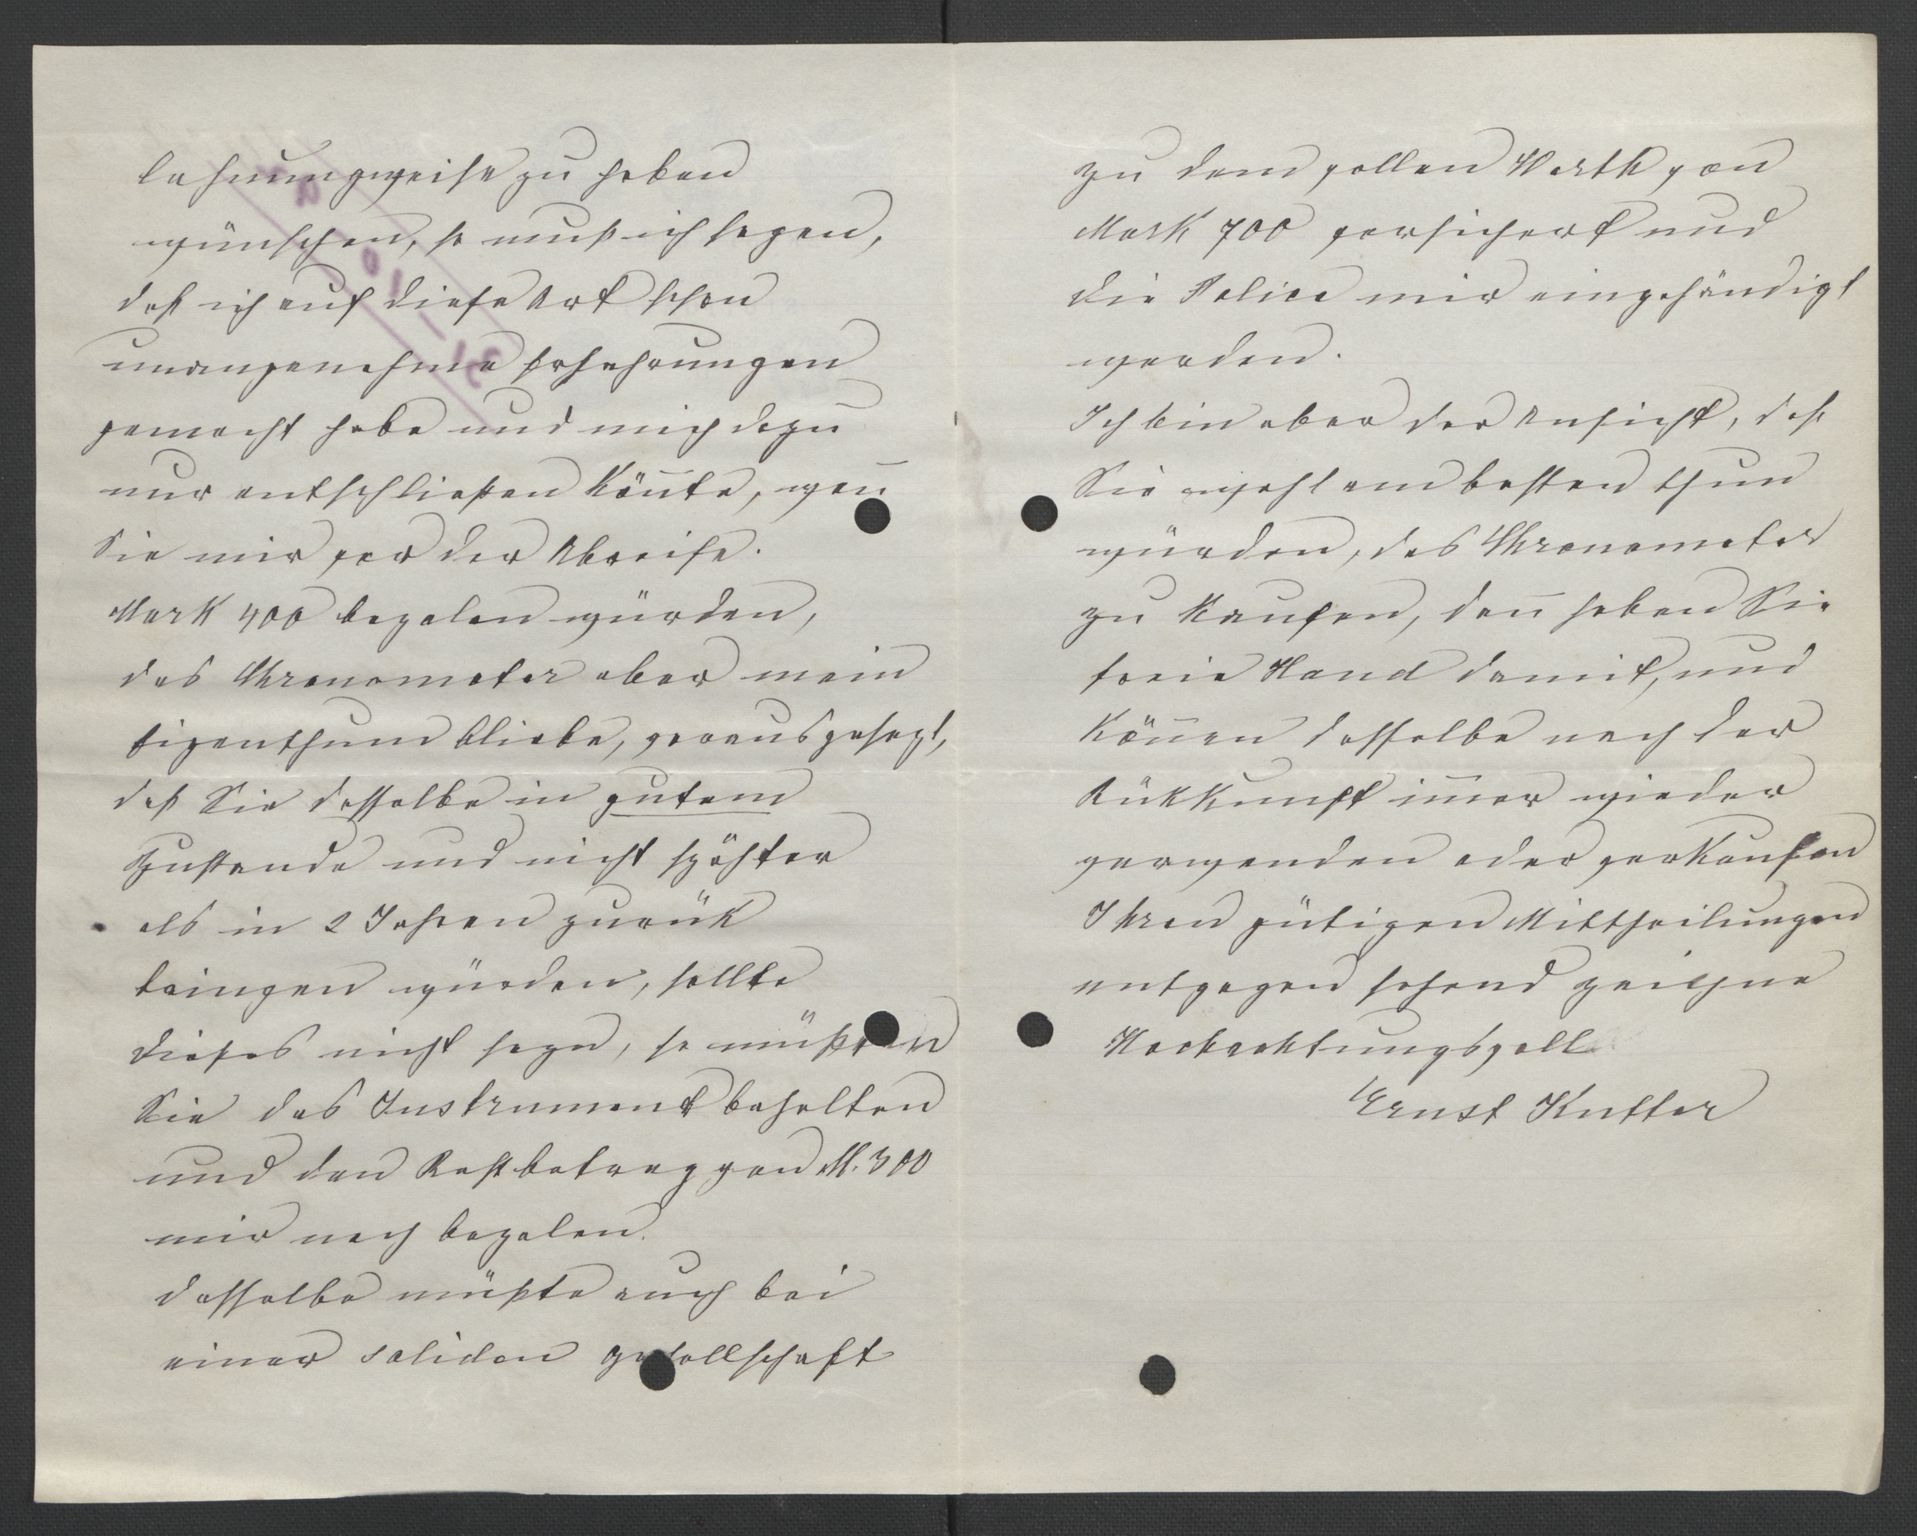 lehnungweise zu haben
wünschen, so muß ich sagen,
daß ich auf diese Art schon
unangenehme Erfahrungen
gemacht habe und mich dazu
nur entschließen kön̄te, wen̄
Sie mir vor der Abreise.
Mark 400 bezalen würden,
das Chronometer aber mein
Eigenthum bliebe, vorausgesezt,
daß Sie dasselbe in gutem
Zustande und nicht spähter
als in 2 Jahren zurük
bringen würden, sollte
dieses nicht seyn, so müßten
Sie das Instrument behalten
und den Restbetrag von M. 300
mir noch bezalen.
dasselbe müßte auch bei
einer soliden Gesellschaft
zu dem vollen Werth von
Mark 700 versichert und
die Police mir eingehändigt
werden.
Ich bin aber der Ansicht, daß
Sie wohl am besten thun
würden, das Chronometer
zu kaufen, dan̄ haben Sie
freie Hand damit, und
kön̄en dasselbe nach der
Rükkunft im̄er wieder
verwenden oder verkaufen
Ihren gütigen Mittheilungen
entgegen sehend zeichne
Hochachtungsvoll
Ernst Kutter